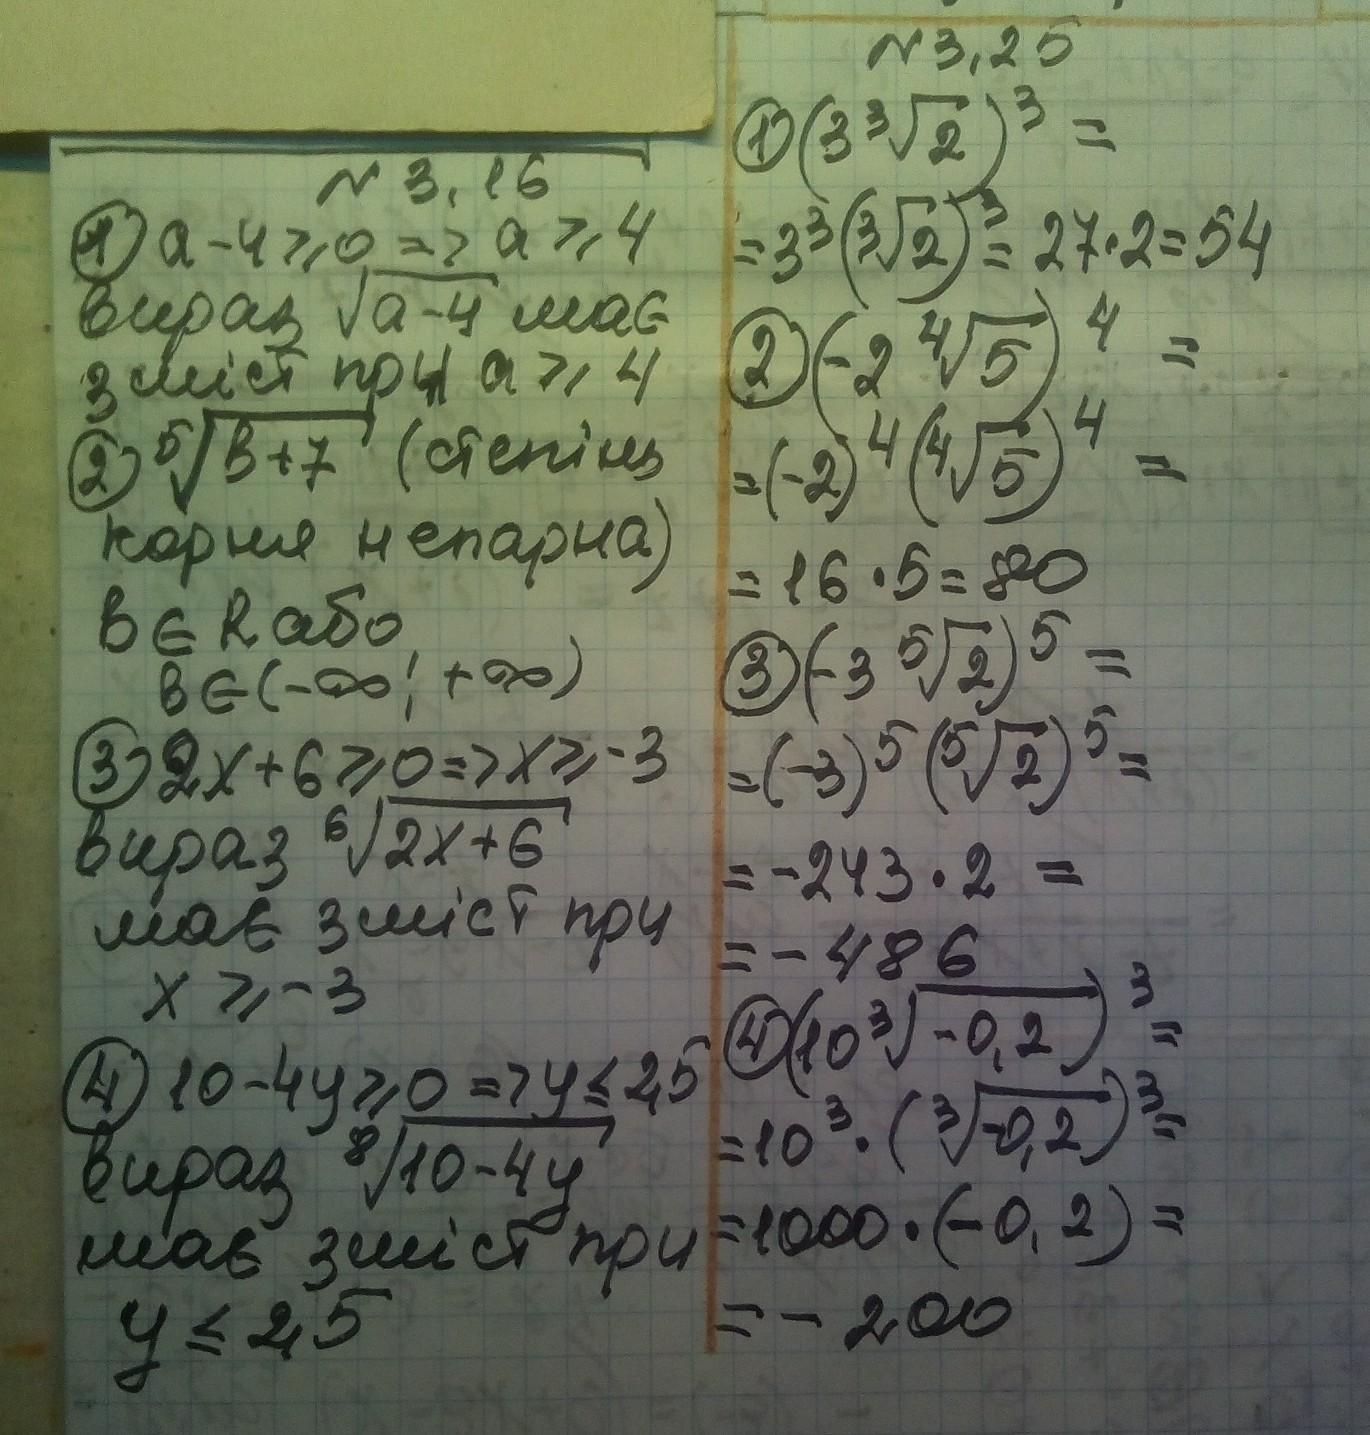 N 3.16
① a-4⩾0 => a⩾4
вираз √(a-4) має
зміст при a⩾4
② ⁵√(b+7) (степінь
кореня непарна)
b∈R або
b∈(-∞; +∞)
③ 2x+6⩾0=>x⩾-3
вираз ⁶√(2x+6)
має зміст при
x⩾-3
④ 10-4y⩾0=>y≤2,5
вираз ⁸√(10-4y)
має зміст при
y≤2,5
N 3.25
① (3 ³√2)³ =
=3³(³√2)³=27·2=54
② (-2 ⁴√5)⁴ =
=(-2)⁴(⁴√5)⁴ =
=16·5=80
③ (-3 ⁵√2)⁵ =
=(-3)⁵(⁵√2)⁵=
=-243·2=
=-486
④ (10 ³√(-0,2))³=
=10³·(³√(-0,2))³=
=1000·(-0,2)=
=-200